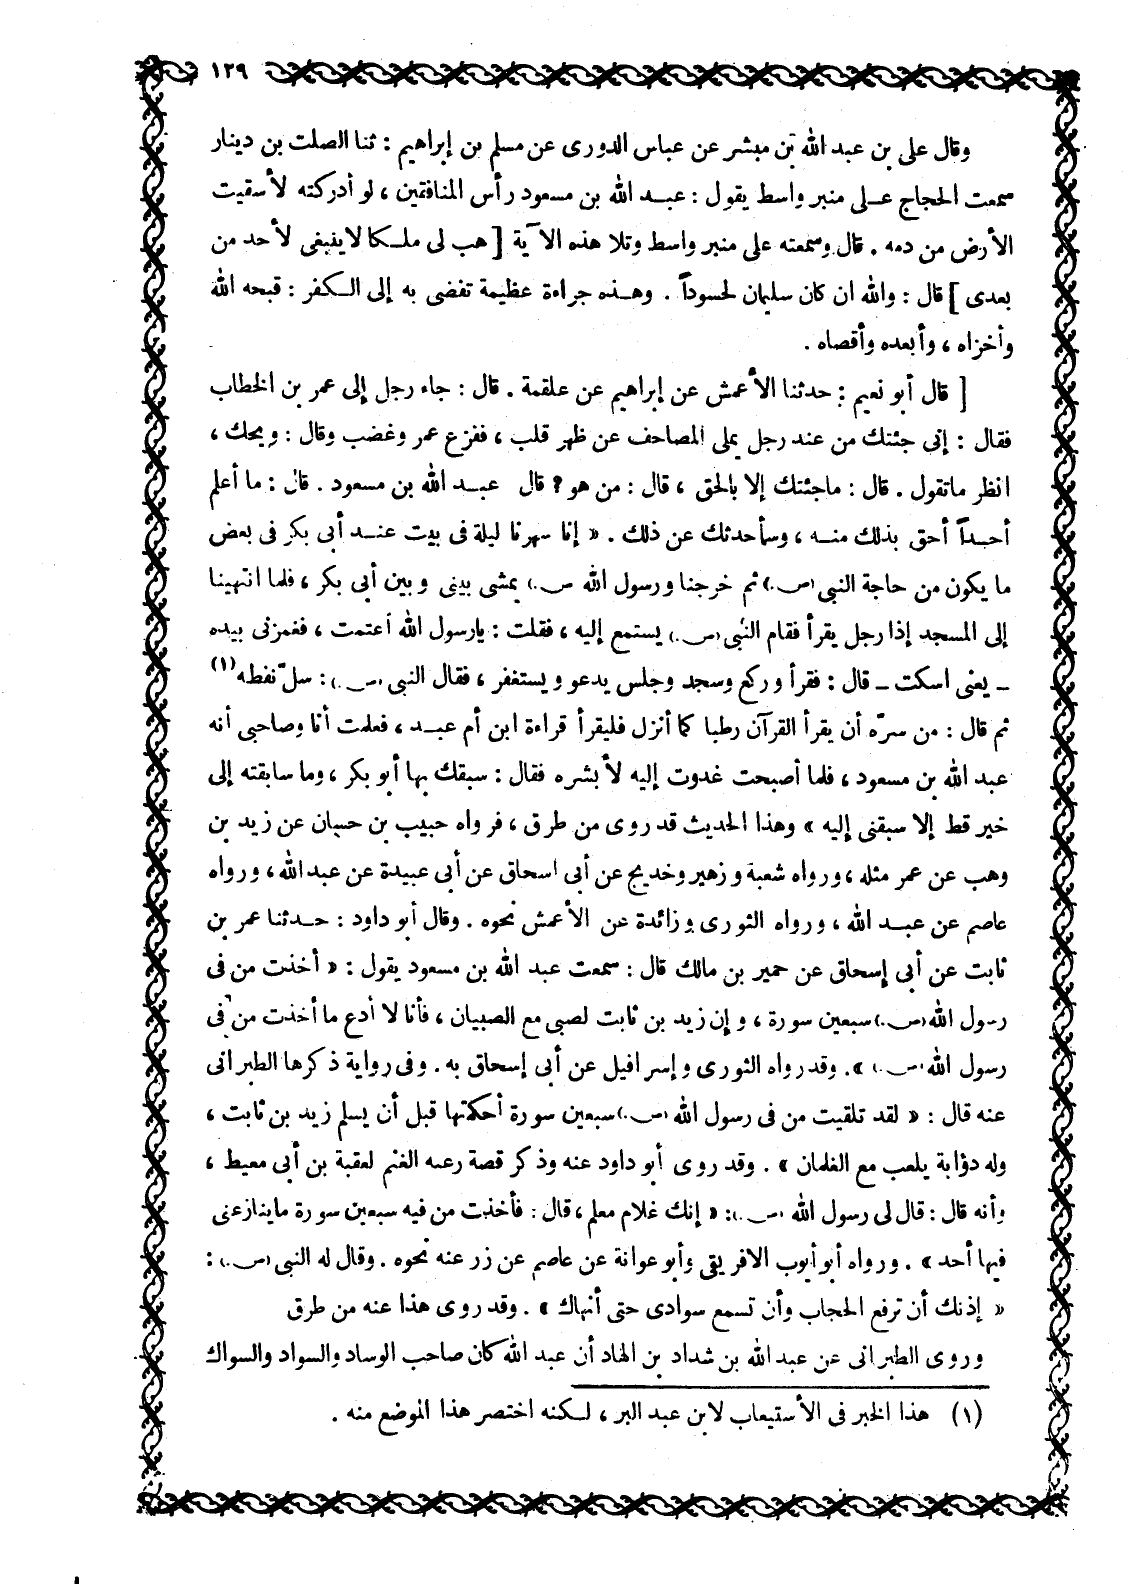 ١٢٩
وقال على بن عبد الله بن مبشر عن عباس الدورى عن مسلم بن إبراهيم : ثنا الصلت بن دينار
سمعت الحجاج عـلى منبر واسط يقول : عبـد الله بن مسعود رأس المنافقين ، لو أدركته لأسقيت
الأرض من دمه . قال وسمعته على منبر واسط وتلا هذه الآية [ هب لى ملـكا لاينبغى لأحد من
بعدى ] قال : والله ان كان سليمان لحسوداً . وهـذه جراءة عظيمة تفضى به إلى الـكفر : قبحه الله
وأخزاه ، وأبعده وأقصاه .
[ قال أبو نعيم : حدثنا الأعمش عن إبراهيم عن علقمة . قال : جاء رجل إلى عمر بن الخطاب
فقال : إنى جئتك من عند رجل يملى المصاحف عن ظهر قلب ، ففزع عمر وغضب وقال : ويحك ،
انظر ماتقول . قال : ماجئتك إلا بالحق ، قال : من هو ؟ قال عبـد الله بن مسعود . قال : ما أعلم
أحـداً أحق بذلك منـه ، وسأحدثك عن ذلك . « إنا سهرنا ليلة فى بيت عنـد أبى بكر فى بعض
ما يكون من حاجة النبى (ص.) ثم خرجنا ورسول الله (ص.) يمشى بينى وبين أبى بكر ، فلما انتهينا
إلى المسجد إذا رجل يقرأ فقام النبى (ص.) يستمع إليه ، فقلت : يارسول الله أعتمت ، فغمزنى بيده
ـ يعنى اسكت ـ قال : فقرأ وركع وسجد وجلس يدعو ويستغفر ، فقال النبى (ص.) : سلّ نفطه (١)
ثم قال : من سرّه أن يقرأ القرآن رطبا كما أنزل فليقرأ قراءة ابن أم عبـد ، فعلمت أنا وصاحبى أنه
عبد الله بن مسعود ، فلما أصبحت غدوت إليه لأبشره فقال : سبقك بها أبو بكر ، وما سابقته إلى
خير قط إلا سبقنى إليه » وهذا الحديث قد روى من طرق ، فرواه حبيب بن حسان عن زيد بن
وهب عن عمر مثله ، ورواه شعبة وزهير وخديج عن أبى اسحاق عن أبى عبيدة عن عبد الله ، ورواه
عاصم عن عبـد الله ، ورواه الثورى وزائدة عن الأعمش نحوه . وقال أبو داود : حـدثنا عمر بن
ثابت عن أبى إسحاق عن حمير بن مالك قال : سمعت عبد الله بن مسعود يقول : « أخذت من فى
رسول الله (ص.) سبعين سورة ، وإن زيد بن ثابت لصبى مع الصبيان ، فأنا لا أدع ما أخذت من فى
رسول الله (ص.) » . وقد رواه الثورى وإسرافيل عن أبى إسحاق به . وفى رواية ذكرها الطبرانى
عنه قال : « لقد تلقيت من فى رسول الله (ص.) سبعين سورة أحكمتها قبل أن يسلم زيد بن ثابت ،
وله ذؤابة يلعب مع الغلمان » . وقد روى أبو داود عنه وذكر قصة رعيه الغنم لعقبة بن أبى معيط ،
وأنه قال : قال لى رسول الله (ص.) : « إنك غلام معلم ، قال : فأخذت من فيه سبعين سورة ماينازعنى
فيها أحد » . ورواه أبو أيوب الافريقى وأبو عوانة عن عاصم عن زر عنه نحوه . وقال له النبى (ص.) :
« إذنك أن ترفع الحجاب وأن تسمع سوادى حتى أنهاك » . وقد روى هذا عنه من طرق
وروى الطبرانى عن عبد الله بن شداد بن الهاد أن عبد الله كان صاحب الوساد والسواد والسواك
(١) هذا الخبر فى الأستيعاب لابن عبد البر ، لـكنه اختصر هذا الموضع منه .